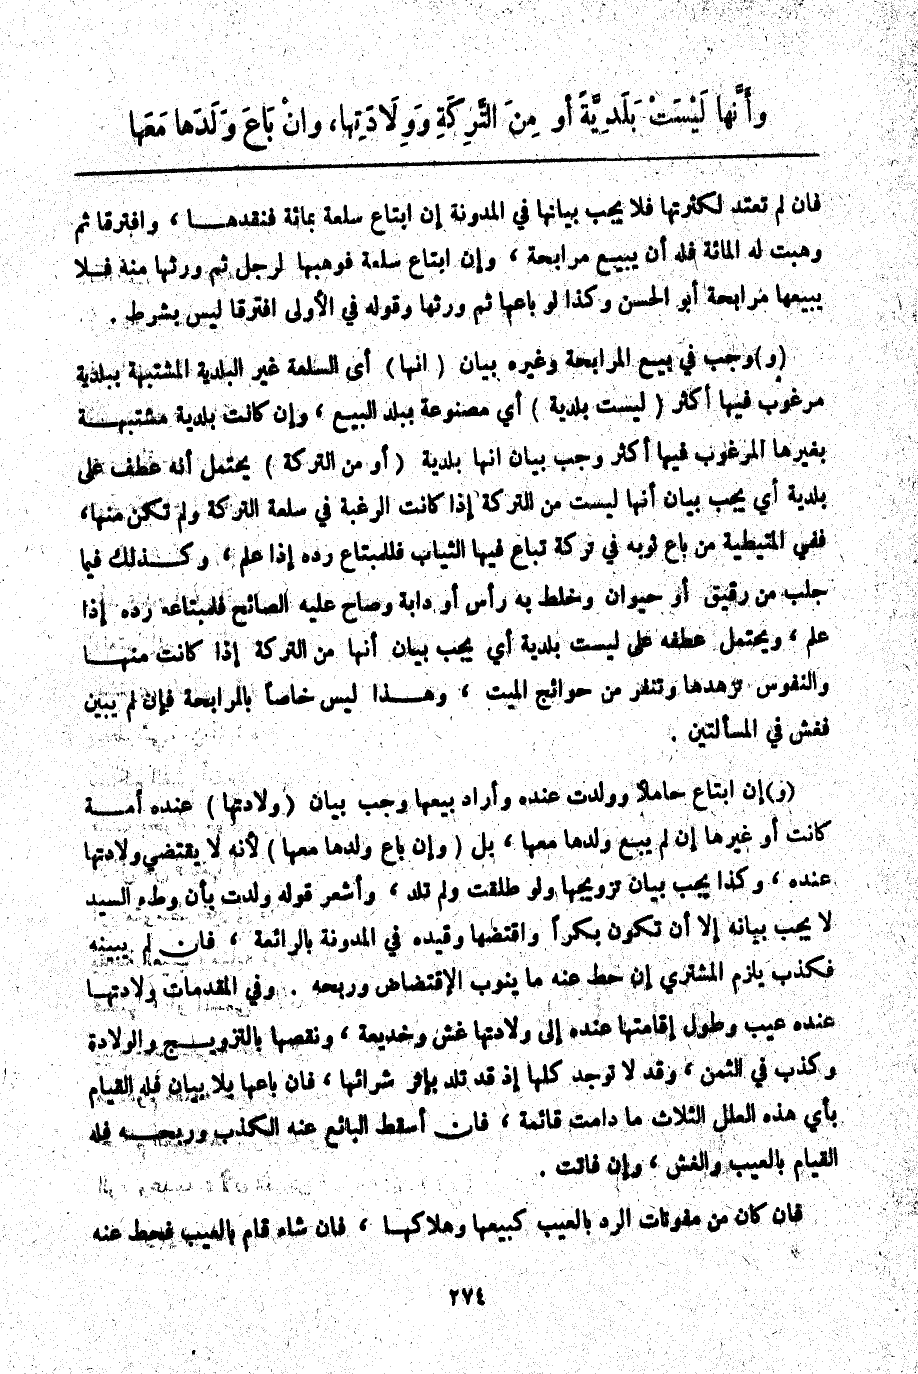 وأَنَّها لَيْسَتْ بَلَدِيَّةَ أو مِنَ التَّرِكَةِ وَوِلَادَتِها، وانْ بَاعَ وَلَدَها مَعَها
فان لم تعتد لكثرتها فلا يجب بيانها في المدونة إن ابتاع سلعة بمائة فنقدهـــا ، وافترقا ثم
وهبت له المائة فله أن يبيع مرابحة ، وإن ابتاع سلعة فوهبها لرجل ثم ورثها منه فـلا
يبيعها مرابحة أبو الحسن وكذا لو باعها ثم ورثها وقوله في الأولى افترقا ليس بشرط .
(و)وجب في بيع المرابحة وغيره بيان ( انها ) أى السلعة غير البلدية المشتبهة ببلدية
مرغوب فيها أكثر ( ليست بلدية ) أي مصنوعة ببلد البيع ، وإن كانت بلدية مشتبهـــة
بغيرها المرغوب فيها أكثر وجب بيان انها بلدية ( أو من التركة ) يحتمل أنه عطف على
بلدية أي يجب بيان أنها ليست من التركة إذا كانت الرغبة في سلعة التركة ولم تكن منها،
ففي المتيطية من باع ثوبه في تركة تباع فيها الثياب فللمبتاع رده إذا علم ، وكـــذلك فيا
جلب من رقيق أو حيوان وخلط به رأس أو دابة وصاح عليه الصائح فللمبتاعه رده إذا
علم ، ويحتمل عطفه على ليست بلدية أي يجب بيان أنها من التركة إذا كانت منهـــا
والنفوس تزهدها وتنفر من حوائج الميت ، وهـــذا ليس خاصاً بالمرابحة فإن لم يبين
فغش في المسألتين .
(و)إن ابتاع حاملاً وولدت عنده وأراد بيعها وجب بيان (ولادتها ) عنده أمـــة
كانت أو غيرها إن لم يبع ولدها معها ، بل ( وإن باع ولدها معها ) لأنه لا يقتضي ولادتها
عنده ، وكذا يجب بيان تزويجها ولو طلقت ولم تلد ، وأشعر قوله ولدت بأن وطء السيد
لا يجب بيانه إلا أن تكون بكراً واقتضها وقيده في المدونة بالرائعة ، فان لم يبينه
فكذب يلزم المشتري إن حط عنه ما ينوب الإقتضاض وربحه . وفي المقدمات ولادتهـا
عنده عيب وطول إقامتها عنده إلى ولادتها غش وخديعة ، ونقصها بالتزويـــج والولادة
وكذب في الثمن ، وقد لا توجد كلها إذ قد تلد بإثر شرائها ، فان باعها بلا بيان فله القيام
بأي هذه العلل الثلاث ما دامت قائمة ، فان أسقط البائع عنه الكذب وربحـــه فله
القيام بالعيب والغش ، وإن فاتت .
فان كان من مفوتات الرد بالعيب كبيعها وهلاكهـا ، فان شاء قام بالعيب فحط عنه
٢٧٤